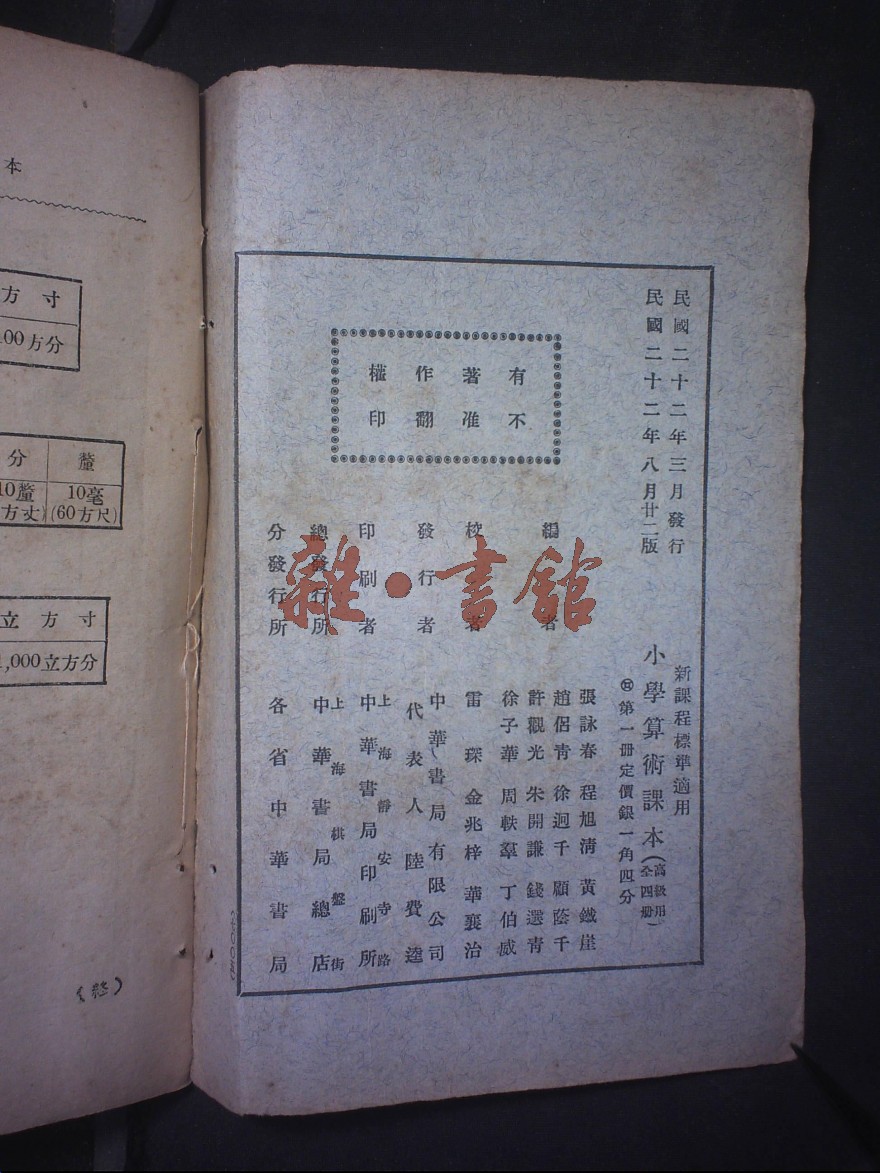 民國二十二年三月發行
民國二十二年八月廿二版
新課程標準適用
小學算術課本(高級用全四册)
第一册定價銀一角四分
有著作權
不准翻印
編者
張詠春 程旭清 黃鐵崖
趙侶青 徐迥千 顧蔭千
許觀光 朱開謙 錢選青
徐子華 周軼羣 丁伯威
校者
雷琛 金兆梓 華襄治
發行者
中華書局有限公司
代表人 陸費逵
印刷者
上海靜安寺路
中華書局印刷所
總發行所
上海棋盤街
中華書局總店
分發行所
各省中華書局
雜·書館
本
方寸
00方分
分 釐
10釐 10毫
方丈) (60方尺)
立方寸
1,000立方分
(終)